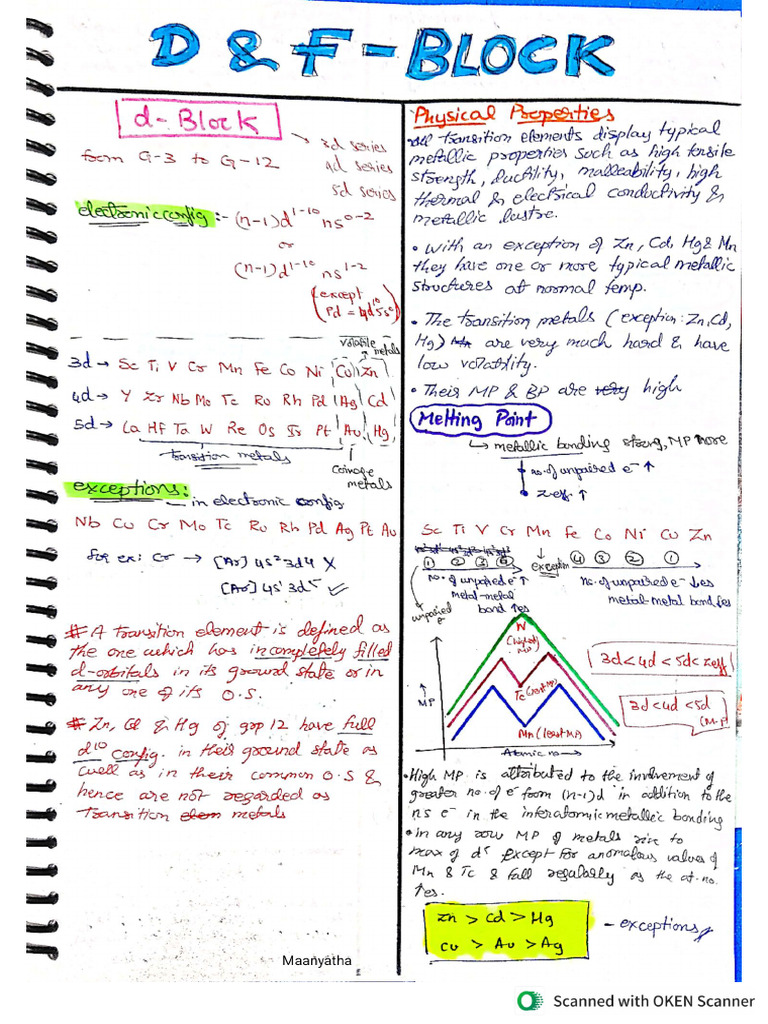 D & F - BLOCK
d - Block
from G-3 to G-12
→ 3d series
4d series
5d series
electronic config :- (n-1)d¹⁻¹⁰ ns⁰⁻²
or
(n-1)d¹⁻¹⁰ ns¹⁻²
(except
Pd = 4d¹⁰5s⁰)
volatile
metals
3d → Sc Ti V Cr Mn Fe Co Ni Cu Zn
4d → Y Zr Nb Mo Tc Ru Rh Pd Ag Cd
5d → La Hf Ta W Re Os Ir Pt Au Hg
transition metals
Coinage
metals
exceptions:
in electronic config
Nb Cu Cr Mo Tc Ru Rh Pd Ag Pt Au
for ex: Cr → [Ar] 4s² 3d4 X
[Ar] 4s¹ 3d⁵ ✓
# A transition element is defined as
the one which has incompletely filled
d-orbitals in its ground state or in
any one of its O.S.
# Zn, Cd & Hg of grp 12 have full
d¹⁰ config. in their ground state as
well as in their common O.S &
hence are not regarded as
transition elem metals
Physical Properties
• All transition elements display typical
metallic properties such as high tensile
strength, ductility, malleability, high
thermal & electrical conductivity &
metallic lustre.
• With an exception of Zn, Cd, Hg & Mn
they have one or more typical metallic
structures at normal temp.
• The transition metals (exception: Zn, Cd,
Hg) Mn are very much hard & have
low volatility.
• Their MP & BP are very high
Melting Point
↳ metallic bonding strong, MP more
no. of unpaired e⁻ ↑
Zeff ↑
Sc Ti V Cr Mn Fe Co Ni Cu Zn
1 2 3 exception 4 3 2 1
no. of unpaired e⁻ ↑
metal-metal
bond ↑es
no. of unpaired e⁻ ↓es
metal-metal bond ↓es
unpaired
e⁻
W
(highest
MP)
Tc (least MP)
Mn (least MP)
↑
MP
Atomic no →
3d < 4d < 5d < Zeff
3d < 4d < 5d
(M.P)
• High MP is attributed to the involvement of
greater no. of e⁻ from (n-1)d in addition to the
ns e⁻ in the interatomic metallic bonding
• in any row MP of metals rise to
max of d⁵ except for anomalous values of
Mn & Tc & fall regularly as the at. no.
↑es.
Zn > Cd > Hg
Cu > Au > Ag
- exceptions
Maanyatha
Scanned with OKEN Scanner